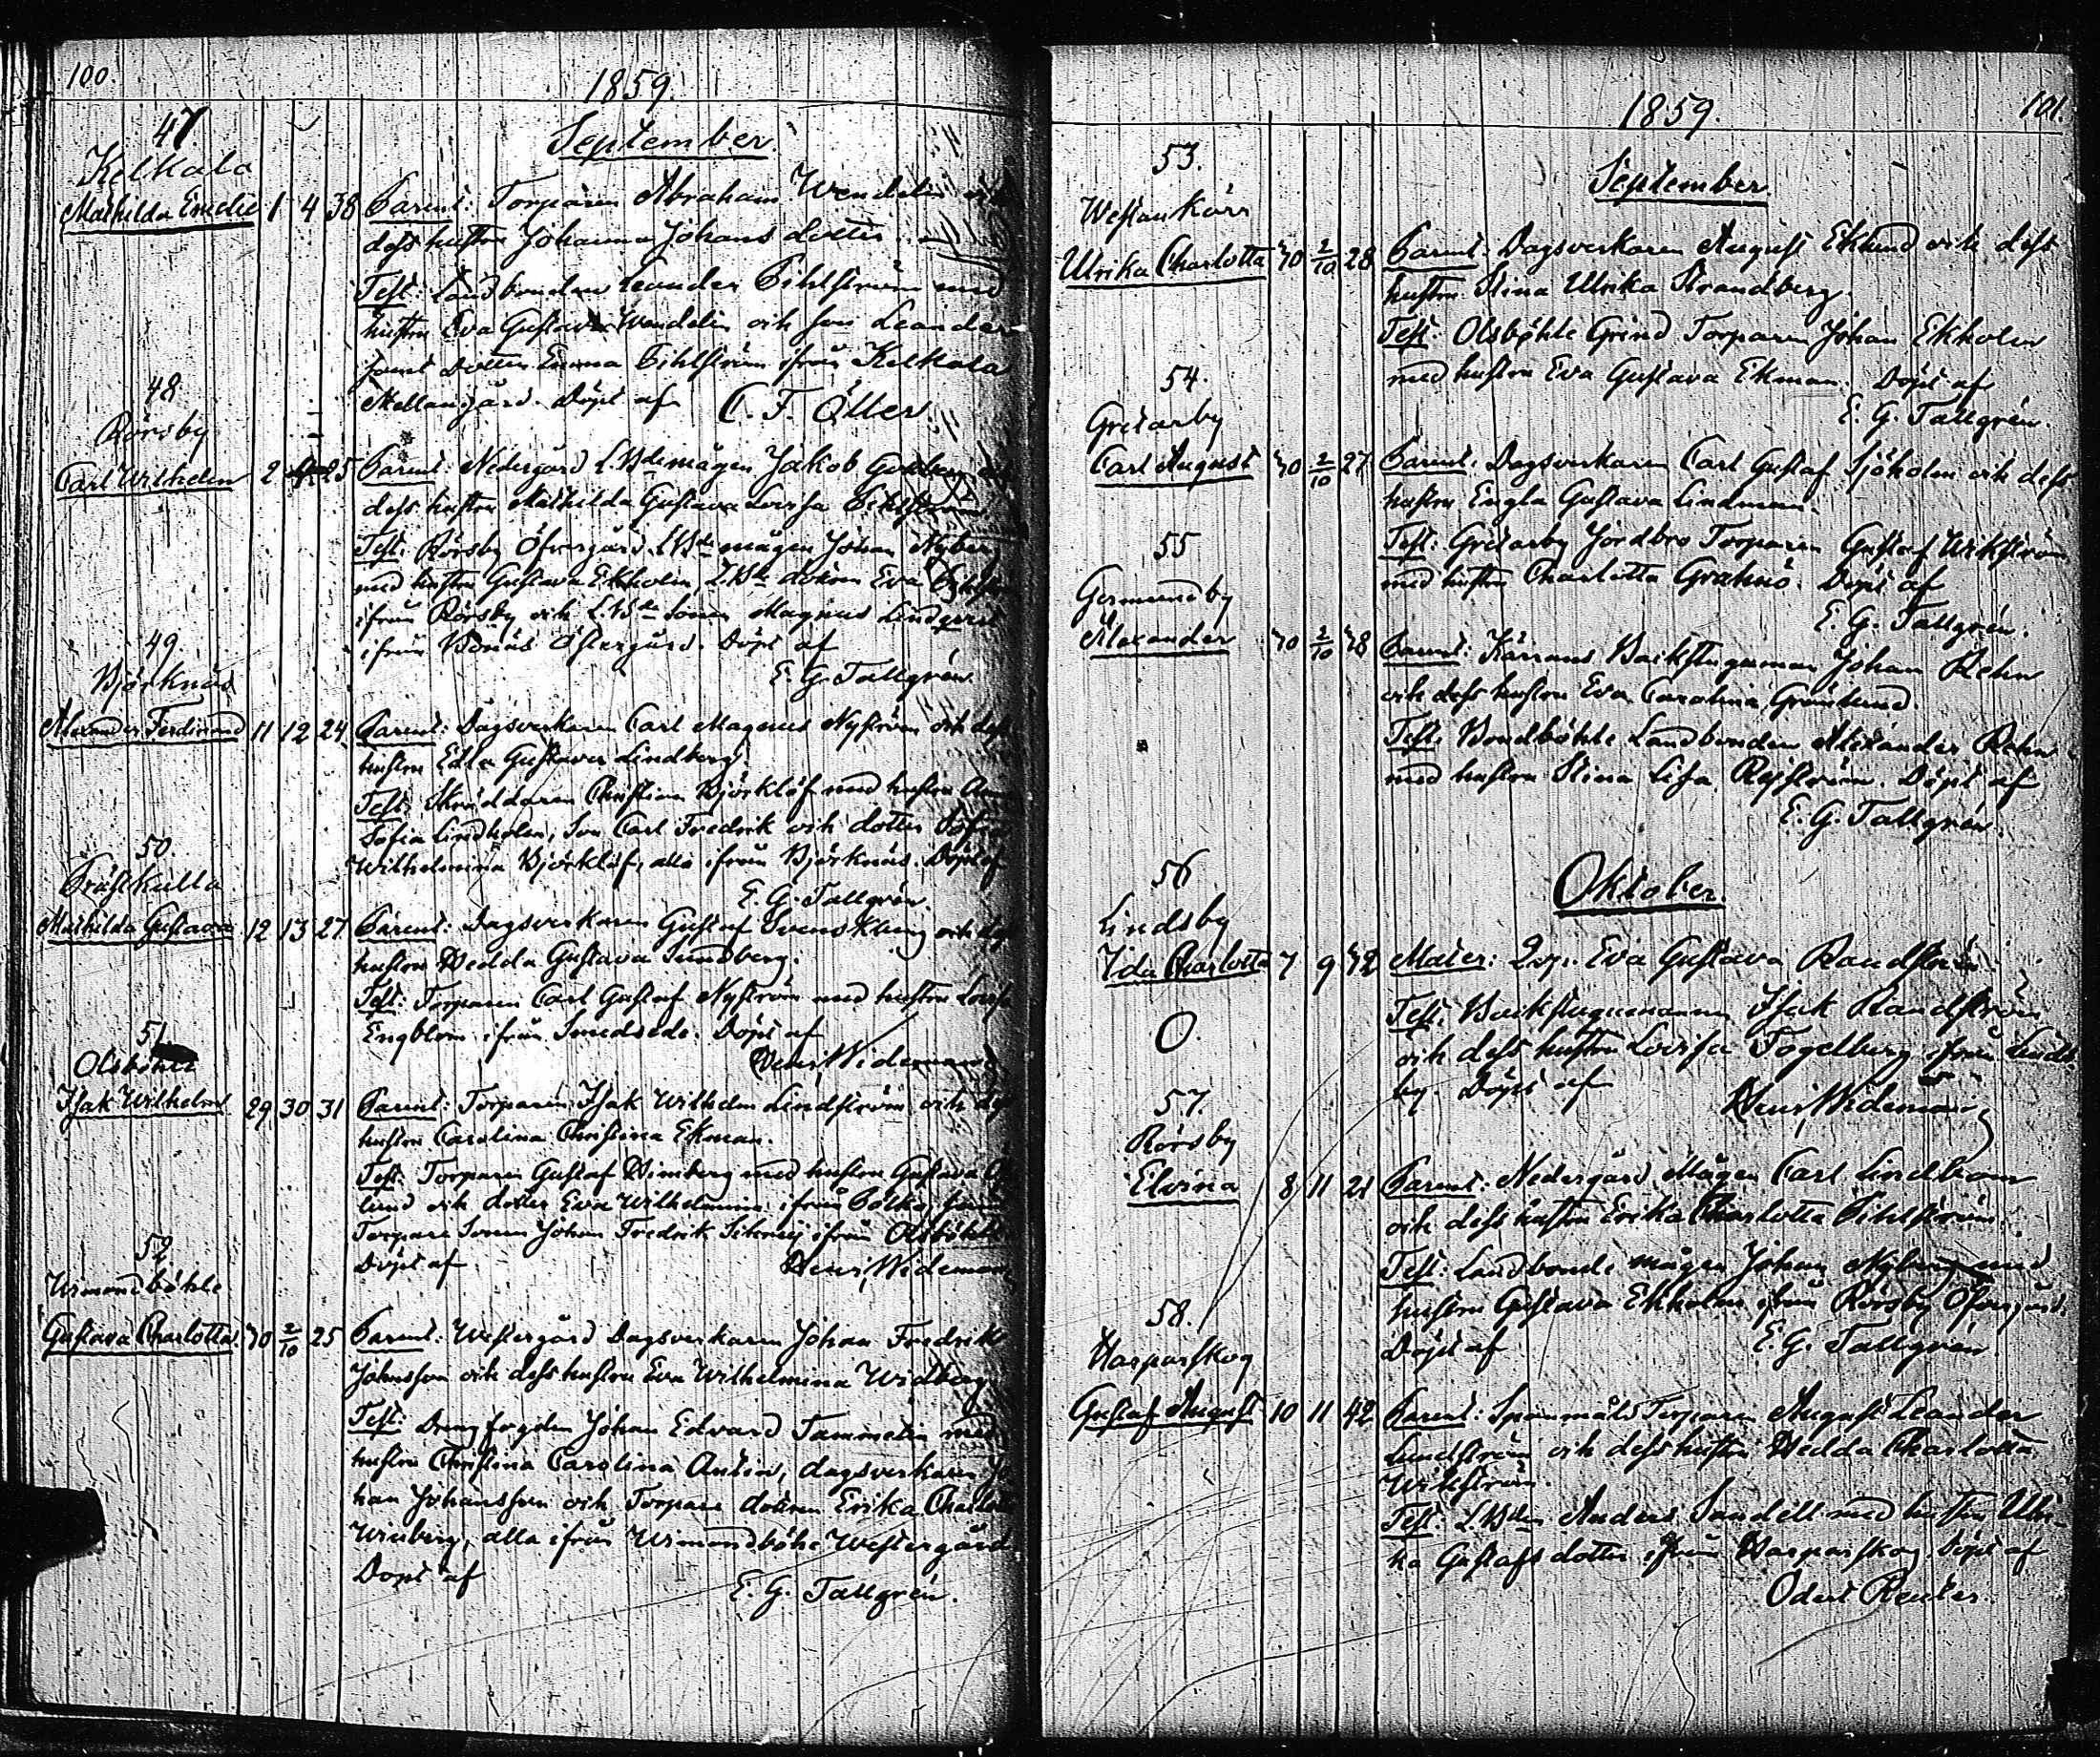 100.
1859.
September.
47
Kelkala
Mathilda Emelie 1 4 38 Parent: Torparen Abraham Wendelin och
dess hustru Johanna Johans dotter
Test: Landbonden Leander Pihlström med
hustru Eva Gustava Wendelin och son Leander
samt Dotter Emma Pihlström ifrån Kelkala
Mellangård. Döpt af C. F. Öller
48
Rörsby
Carl Wilhelm 2 4 25 Parent: Nedergård L.Bde mågen Jakob
dess hustru Mathilda Gustava Lovisa Pihlström
Test: Rörsby Öfvergård L.Bde mågen Johan Nyberg
med hustru Gustava Ekholm, L.Bde dottren Eva
ifrån Rörsby och L.Bde Sonen Magnus Lindqvist
ifrån Bonäs Östergård. Döpt af
E. G. Tallgrén
49.
Björknäs
Alexander Ferdinand 11 12 24 Parent: Dagsverkaren Carl Magnus Nyström och dess
hustru Edla Gustava Lindberg.
Test: Skräddaren Christian Björklöf med hustru
Sofia Lindholm, Son Carl Fredrik och dotter Sofia
Wilhelmina Björklöf, alla ifrån Björknäs. Döpt af
E. G. Tallgrén.
50.
Prästkulla
Mathilda Gustava 12 13 27 Parent: Dagsverkaren Gustaf Svenskberg och dess
hustru Hedda Gustava Sundberg.
Test: Torparen Carl Gustaf Nyström med hustru Lovisa
Engblom ifrån Smedsede. Döpt af
Henr. Wideman
51
Olsböhle
Isak Wilhelm 29 30 31 Parent: Torparen Isak Wilhelm Lindström och dess
hustru Carolina Christina Ekman.
Test: Torparen Gustaf Wimberg med hustru Gustava
lund och dotter Eva Wilhelmina ifrån Bolka, samt
Torpare Sonen Johan Fredrik ifrån Olsböhle
Döpt af Henr. Wideman
52
Wimondböhle
Gustava Charlotta 30 2/10 25 Parent: Westergård Dagsverkaren Johan Fredrik
Johansson och dess hustru Eva Wilhelmina Widberg
Test: Drengfogden Johan Edvard Tammelin med
hustru Christina Carolina Antin, dagsverkaren Jo
han Johansson och Torpare dottren Erika Charlotta
Winberg, alla ifrån Wimondböhle Westergård
Döpt af
E. G. Tallgrén.
1859.
101.
September
53.
Westankärr
Ulrika Charlotta 30 2/10 28 Parent: Dagsverkaren August Eklund och dess
hustru Stina Ulrika Strandberg.
Test: Olsböhle Grind Torparen Johan Ekholm
med hustru Eva Gustava Ekman. Döpt af
E. G. Tallgrén.
54.
Gretarby
Carl August 30 2/10 27 Parent: Dagsverkaren Carl Gustaf Sjöholm och dess
hustru Engla Gustava Lindman.
Test: Gretarby Jordbro Torparen Gustaf Wikström
med hustru Charlotta Grahnö. Döpt af
E. G. Tallgrén.
55
Germundby
Alexander 30 2/10 38 Parent: Kärrans Backstugaman Johan Rehn
och dess hustru Eva Carolina Grönlund.
Test: Bondböhle Landbonden Alexander Rehn
med hustru Stina Lisa Rejström. Döpt af
E. G. Tallgrén.
Oktober.
56
Lindsby
Ida Charlotta 7 9 32 Mater: Q.p. Eva Gustava Randström
Test: Backstugumannen Isak Randström
och dess hustru Lovisa Fogelberg ifrån Linds
by. Döpt af Henr. Wideman
O.
57.
Rörsby
Elvina 8 11 21 Parent: Nedergård Mågen Carl Lindbom
och dess hustru Erika Charlotta Pihlström.
Test: Landbonde mågen Johan Nyberg med
hustru Gustava Ekholm ifrån Rörsby Öfvergård.
Döpt af E. G. Tallgrén.
58.
Harparskog
Gustaf August 10 11 42 Parent: Torparen August Leander
Lundström och dess hustru Hedda Charlotta
Wikström.
Test: L.Bden Anders Sandell med hustru Ulri-
ka Gustafs dotter ifrån Harparskog. Döpt af
Odert Reuter.